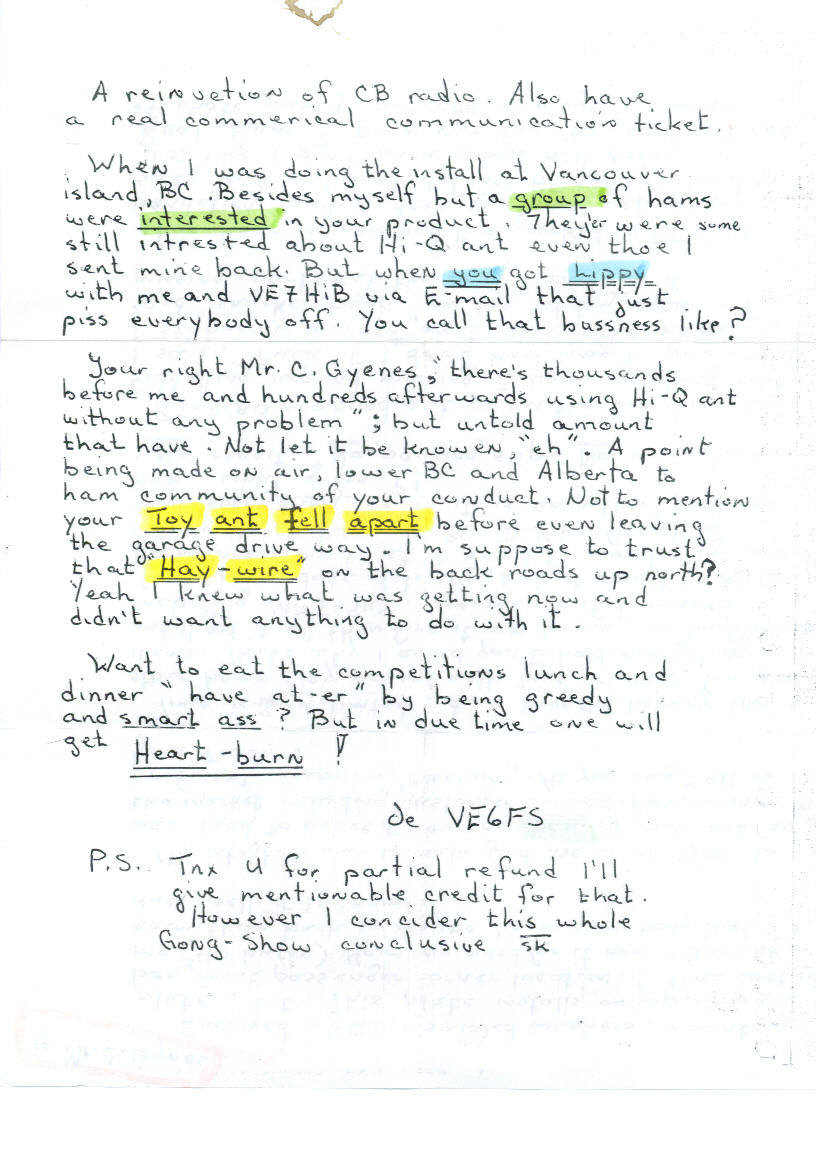 A reinvetion of CB radio. Also have
a real commerical communication ticket.
When I was doing the install at Vancouver
island, BC. Besides myself but a group of hams
were interested in your product. They'er were some
still intrested about Hi-Q ant even thoe I
sent mine back. But when you got hippy
with me and VE7HiB via E-mail that just
piss everybody off. You call that bussness like?
Your right Mr. C. Gyenes, "there's thousands
before me and hundreds afterwards using Hi-Q ant
without any problem"; but untold amount
that have. Not let it be knowen, "eh". A point
being made on air, lower BC and Alberta to
ham community of your conduct. Not to mention
your Toy ant fell apart before even leaving
the garage drive way. I'm suppose to trust
that "Hay-wire" on the back roads up north?
Yeah I knew what was getting now and
didn't want anything to do with it.
Want to eat the competitions lunch and
dinner "have at-er" by being greedy
and smart ass? But in due time one will
get Heart-burn !
de VE6FS
P.S. Tnx U for partial refund I'll
give mentionable credit for that.
However I concider this whole
Gong-Show conclusive SK